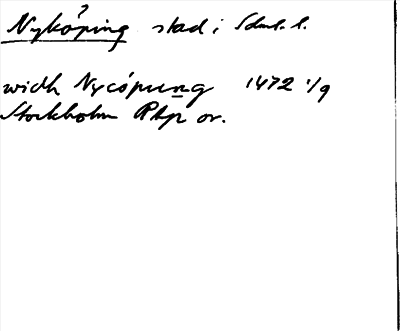 Nyköping stad i Söml. l.
widh Nycöpung 1472 1/9
Stockholm RAp or.